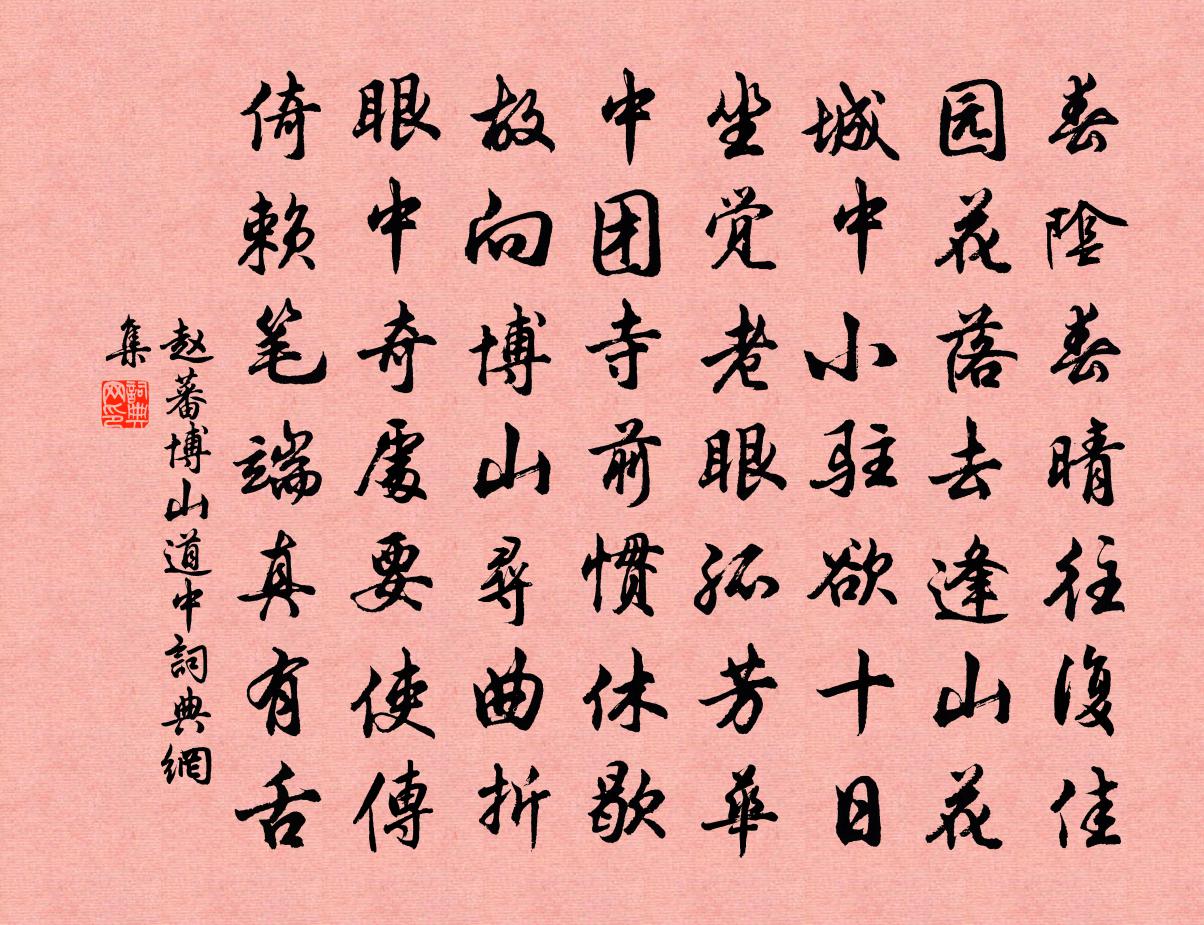 春陰春晴往復佳
园花落去逢山花
城中小駐欲十日
坐觉老眼孤芳華
中团寺前慣休歇
故向博山尋曲折
眼中奇處要使傳
倚赖笔端真有舌
赵蕃博山道中詞典網
集
詞典
网印